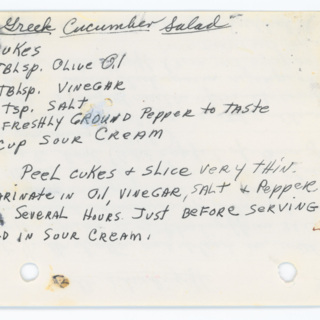 Greek Cucumber Salad
UKES
TBLSP. OLIVE OIL
TBLSP. VINEGAR
TSP. SALT
FRESHLY GROUND PEPPER TO TASTE
CUP SOUR CREAM
PEEL CUKES & SLICE VERY THIN.
ARINATE IN OIL, VINEGAR, SALT & PEPPER
SEVERAL HOURS. JUST BEFORE SERVING
D IN SOUR CREAM.